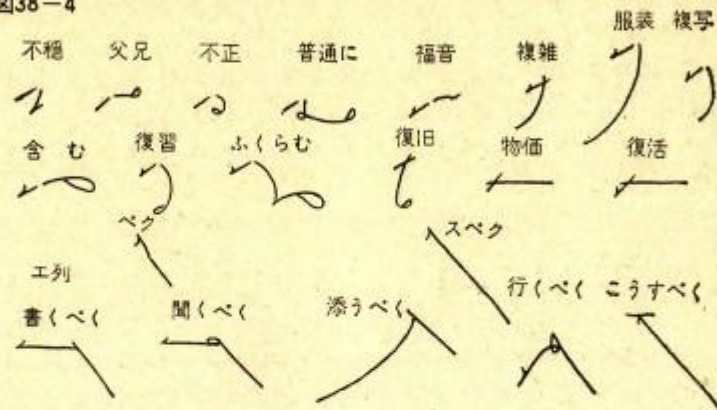 図38-4
服装 複写
不穏 父兄 不正 普通に 福音 複雑
含む 復習 ふくらむ 復旧 物価 復活
ベク スベク
エ列
書くべく 聞くべく 添うべく 行くべく こうすべく